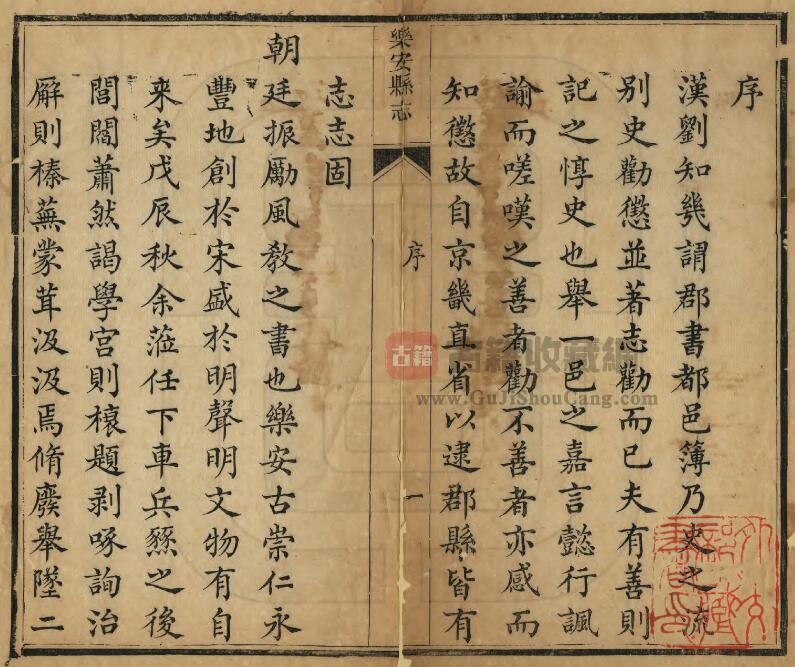 序
漢劉知幾謂郡書都邑簿乃史之流
別史勸懲並著志勸而已夫有善則
記之惇史也舉一邑之嘉言懿行諷
諭而嗟嘆之善者勸不善者亦感而
知懲故自京畿直省以逮郡縣皆有
樂安縣志
序
一
志志固
朝廷振勵風教之書也樂安古崇仁永
豐地創於宋盛於明聲明文物有自
來矣戊辰秋余蒞任下車兵燹之後
閭閻蕭然謁學宮則榱題剥啄詢治
廨則榛蕪蒙茸汲汲焉脩廢舉墜二
古籍
古籍收藏網
www.GuJiShouCang.com